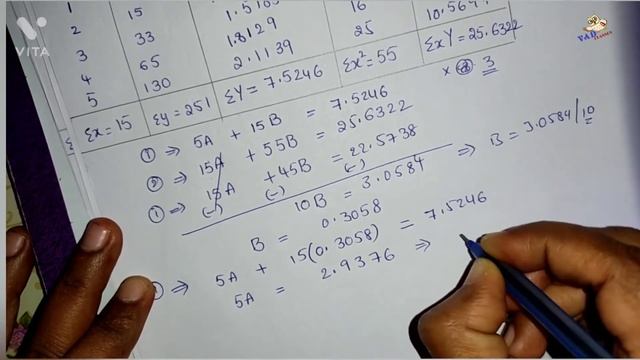 1 15 1.5185 16 10.5695
2 33 1.8129 25
3 65 2.1139
4 130
5
Σx=15 Σy=251 ΣY=7.5246 Σx²=55 ΣxY=25.6322
① ⇒ 5A + 15B = 7.5246 × 3
② ⇒ 15A + 55B = 25.6322
① ⇒ 15A +45B = 22.5738
(-) (-) (-)
10B = 3.0584 ⇒ B = 3.0584/10
B = 0.3058
⇒ 5A + 15(0.3058) = 7.5246
5A = 2.9376 ⇒
VITA